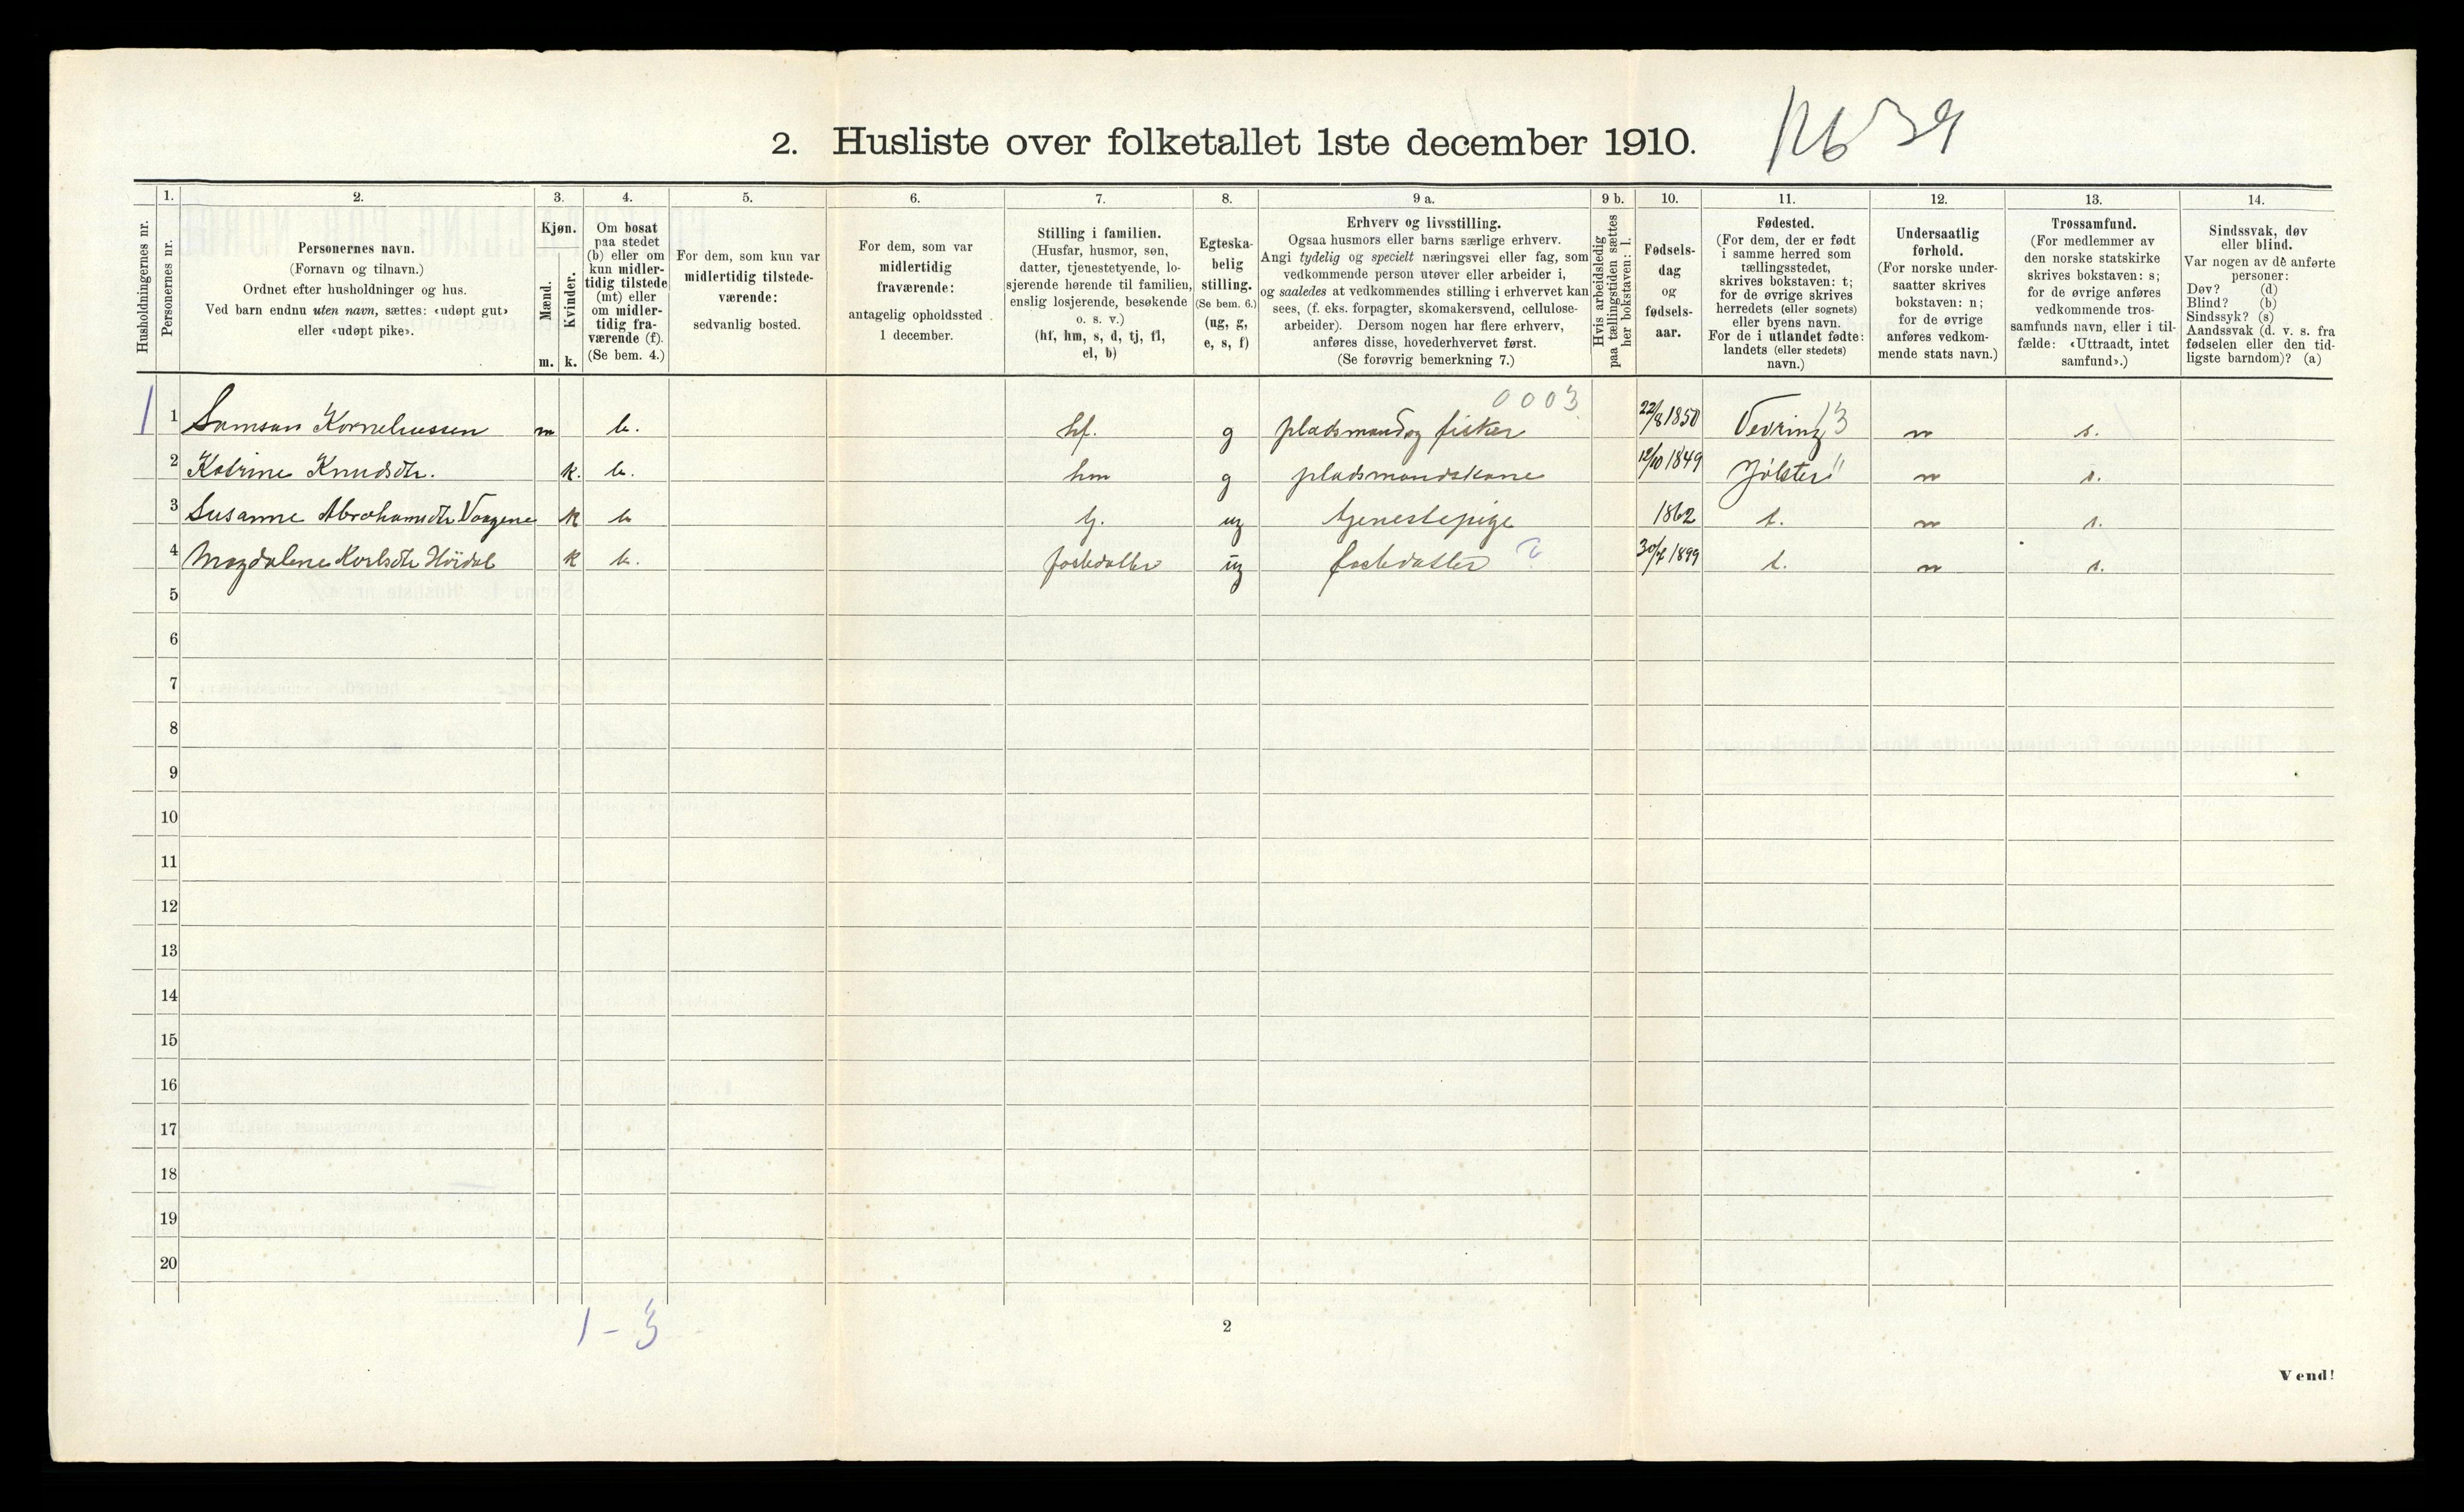 2. Husliste over folketallet 1ste december 1910.
1639
Husholdningernes nr.
1.
Personernes nr.
2.
Personernes navn.
(Fornavn og tilnavn.)
Ordnet efter husholdninger og hus.
Ved barn endnu uten navn, sættes: «udøpt gut»
eller «udøpt pike».
3.
Kjøn.
Mænd.
Kvinder.
m. k.
4.
Om bosat
paa stedet
(b) eller om
kun midler-
tidig tilstede
(mt) eller
om midler-
tidig fra-
værende (f).
(Se bem. 4.)
5.
For dem, som kun var
midlertidig tilstede-
værende:
sedvanlig bosted.
6.
For dem, som var
midlertidig
fraværende:
antagelig opholdssted
1 december.
7.
Stilling i familien.
(Husfar, husmor, søn,
datter, tjenestetyende, lo-
sjerende hørende til familien,
enslig losjerende, besøkende
o. s. v.)
(hf, hm, s, d, tj, fl,
el, b)
8.
Egteska-
belig
stilling.
(Se bem. 6.)
(ug, g,
e, s, f)
9 a.
Erhverv og livsstilling.
Ogsaa husmors eller barns særlige erhverv.
Angi tydelig og specielt næringsvei eller fag, som
vedkommende person utøver eller arbeider i,
og saaledes at vedkommendes stilling i erhvervet kan
sees, (f. eks. forpagter, skomakersvend, cellulose-
arbeider). Dersom nogen har flere erhverv,
anføres disse, hovederhvervet først.
(Se forøvrig bemerkning 7.)
9 b.
Hvis arbeidsledig
paa tællingstiden sættes
her bokstaven: l.
10.
Fødsels-
dag
og
fødsels-
aar.
11.
Fødested.
(For dem, der er født
i samme herred som
tællingsstedet,
skrives bokstaven: t;
for de øvrige skrives
herredets (eller sognets)
eller byens navn.
For de i utlandet fødte:
landets (eller stedets)
navn.)
12.
Undersaatlig
forhold.
(For norske under-
saatter skrives
bokstaven: n;
for de øvrige
anføres vedkom-
mende stats navn.)
13.
Trossamfund.
(For medlemmer av
den norske statskirke
skrives bokstaven: s;
for de øvrige anføres
vedkommende tros-
samfunds navn, eller i til-
fælde: «Uttraadt, intet
samfund».)
14.
Sindssvak, døv
eller blind.
Var nogen av de anførte
personer:
Døv? (d)
Blind? (b)
Sindssyk? (s)
Aandssvak (d. v. s. fra
fødselen eller den tid-
ligste barndom)? (a)
0003
1 1 Samson Korneliussen m b. hf. g pladsmand og fisker 22/8 1850 Vevring 13 n s.
2 Katrine Knudsdtr. k. b. hm g pladsmandskone 12/10 1849 Jølster 11 n s.
3 Susanne Abrahamsdtr Vaagene k b tj. ug tjenestepige 1862 t. n s.
4 Magdalene Karlsdtr Høidal k b. fosterdatter ug fosterdatter ? 1899 t. n s.
5
6
7
8
9
10
11
12
13
14
15
16
17
18
19
20
1-3
2
Vend!